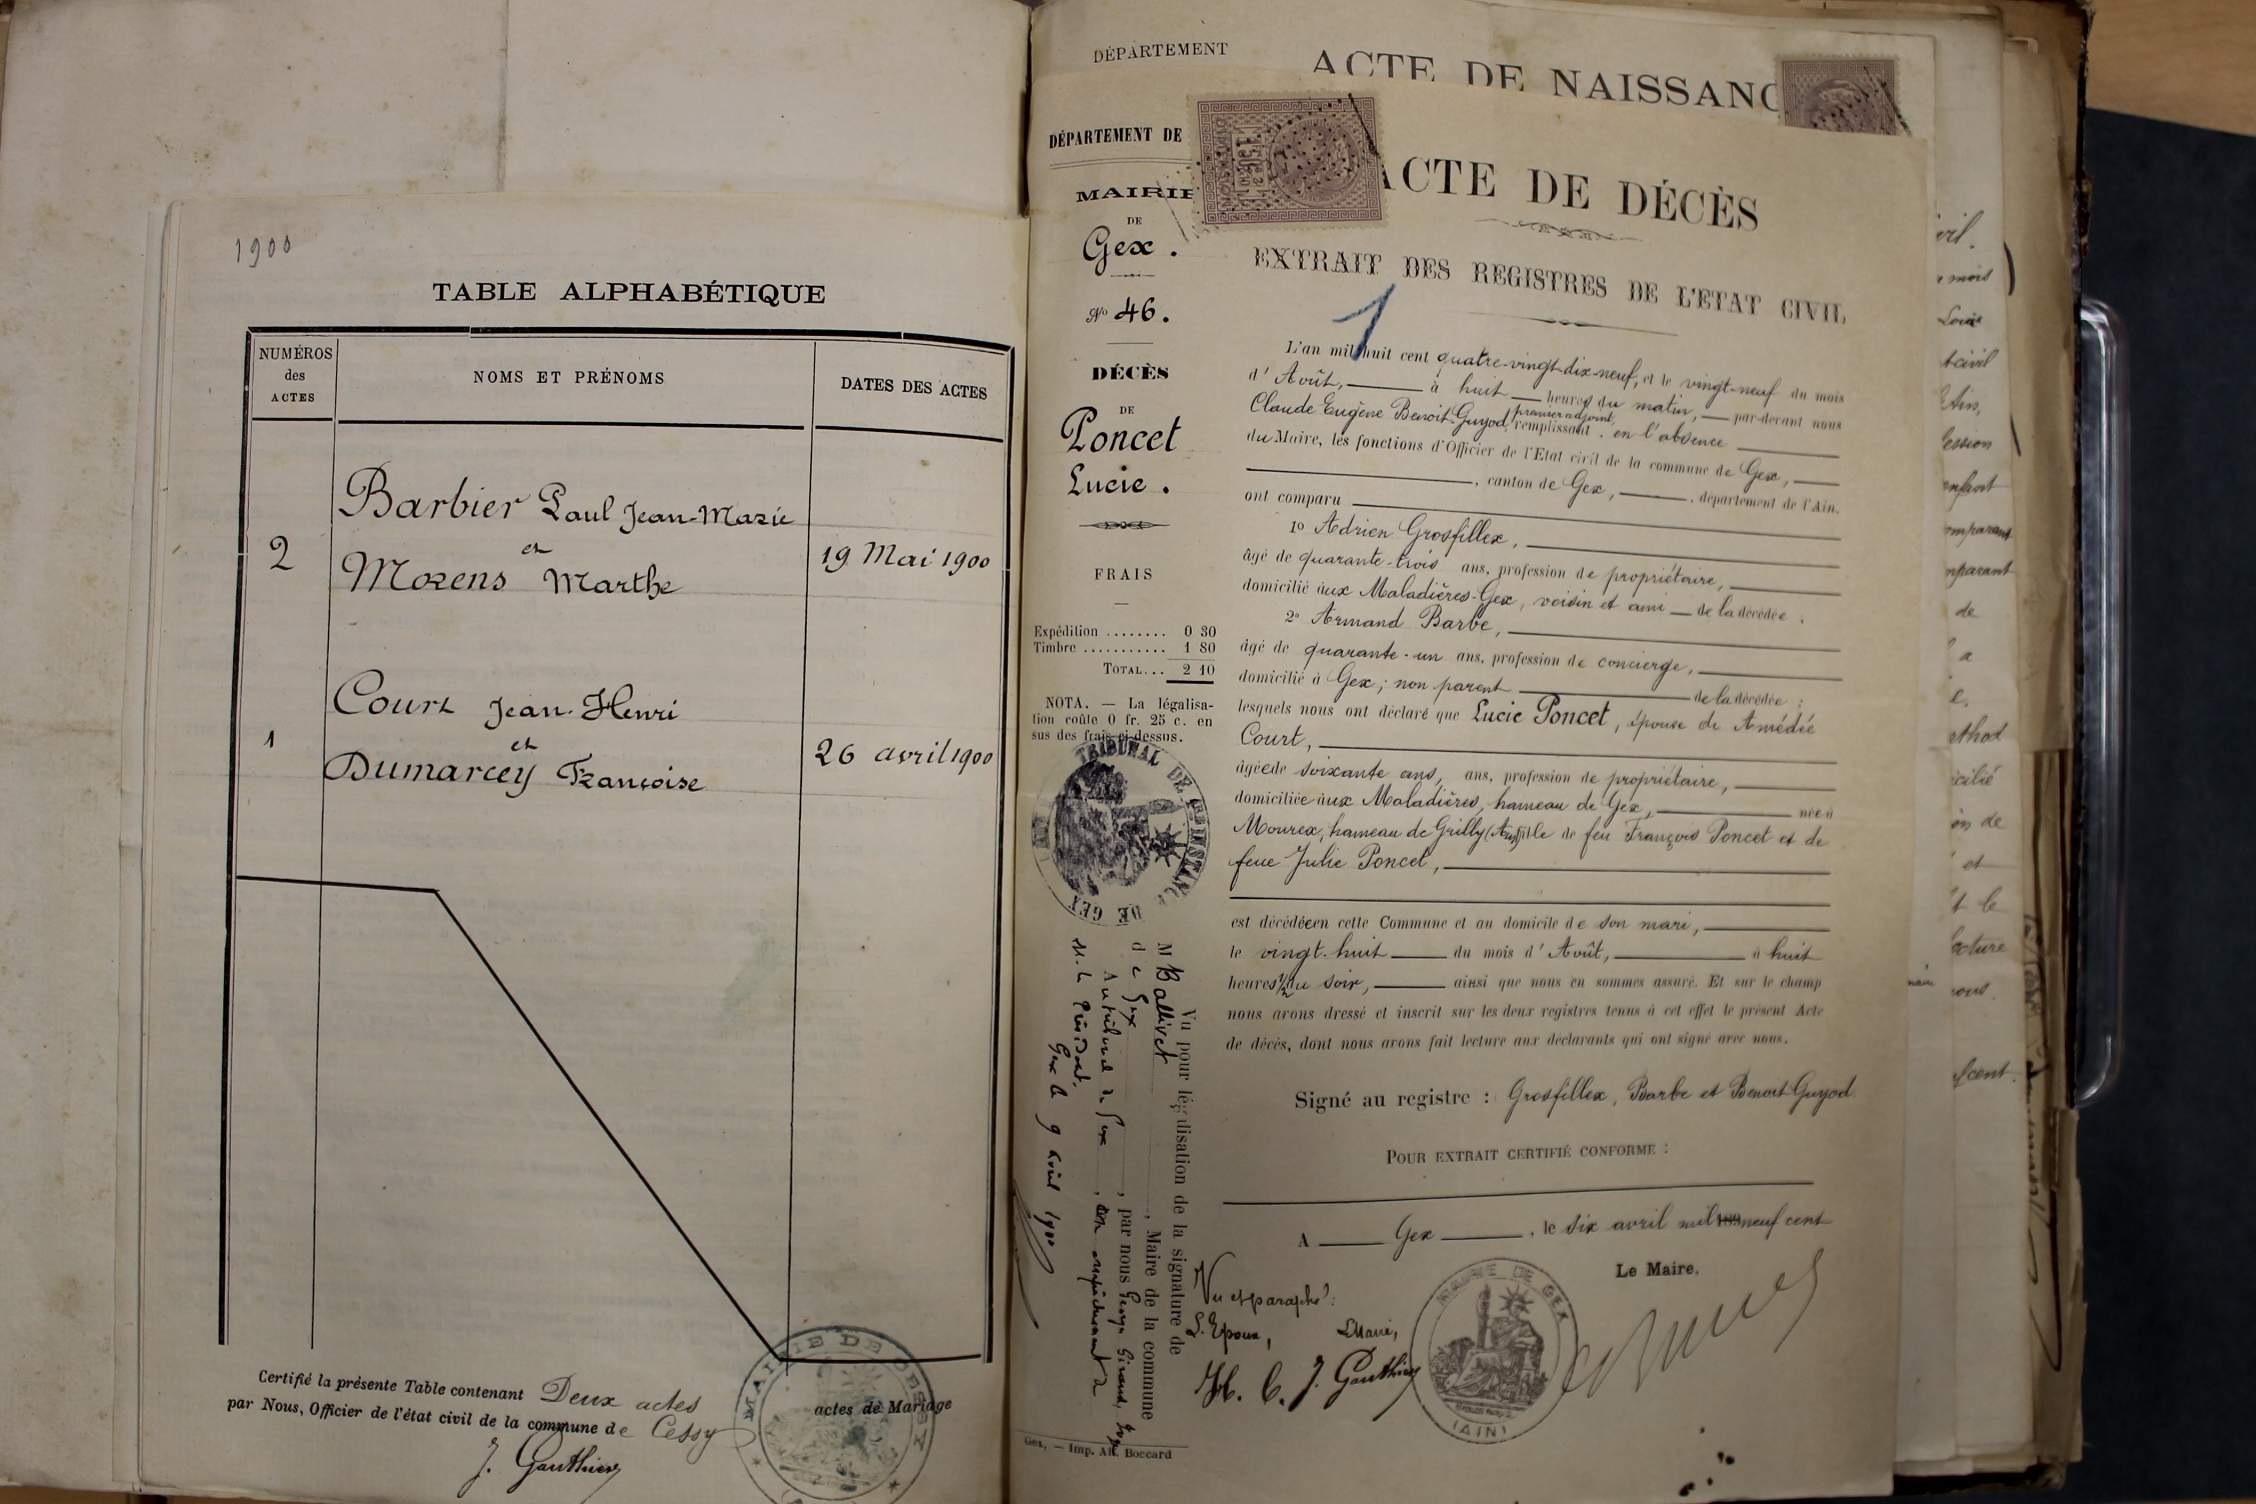 1900
TABLE ALPHABÉTIQUE
NUMÉROS
des
ACTES
NOMS ET PRÉNOMS
DATES DES ACTES
Barbier Paul Jean-Marie
2
et
19 Mai 1900
Morens Marthe
Court Jean-Henri
1
et
26 avril 1900
Dumarcey Françoise
Certifié la présente Table contenant Deux actes actes de Mariage
par Nous, Officier de l'état civil de la commune de Cessy
J. Gauthier
MAIRIE DE CESSY
DÉPARTEMENT
ACTE DE NAISSANC
DÉPARTEMENT DE
MAIRIE
DE
Gex.
No 46.
DÉCÈS
DE
Poncet
Lucie.
FRAIS
Expédition ........ 0 30
Timbre ........... 1 80
TOTAL... 2 10
NOTA. — La légalisa-
tion coûte 0 fr. 25 c. en
sus des frais ci-dessus.
TRIBUNAL DE 1ERE INSTANCE
DE GEX
Vu pour légalisation de la signature de
M Ballivet, Maire de la commune
de Gex, par nous George Giraud, Juge
Au tribunal de Gex, en empêchement de
M. le Président.
Gex le 9 avril 1900
Gex, — Imp. Alf. Boccard
ACTE DE DÉCÈS
EXTRAIT DES REGISTRES DE L'ETAT CIVIL
1
L'an mil huit cent quatre-vingt-dix-neuf, et le vingt-neuf du mois
d'Août, à huit heures du matin, par-devant nous
Claude Eugène Benoit-Guyod, premier adjoint, remplissant, en l'absence
du Maire, les fonctions d'Officier de l'Etat civil de la commune de Gex,
, canton de Gex, , département de l'Ain,
ont comparu
1o Adrien Grosfillex,
âgé de quarante-trois ans, profession de propriétaire,
domicilié aux Maladières-Gex, voisin et ami de la décédée ;
2o Armand Barbe,
âgé de quarante-un ans, profession de concierge,
domicilié à Gex; non parent de la décédée ;
lesquels nous ont déclaré que Lucie Poncet, épouse de Amédée
Court,
âgée de soixante ans, ans, profession de propriétaire,
domiciliée aux Maladières, hameau de Gex, née à
Mourex, hameau de Grilly (Ain) fille de feu François Poncet et de
feue Julie Poncet,
est décédée en cette Commune et au domicile de son mari,
le vingt-huit du mois d'Août, à huit
heures 1/2 du soir, ainsi que nous en sommes assuré. Et sur le champ
nous avons dressé et inscrit sur les deux registres tenus à cet effet le présent Acte
de décès, dont nous avons fait lecture aux déclarants qui ont signé avec nous.
Signé au registre : Grosfillex, Barbe et Benoit-Guyod
POUR EXTRAIT CERTIFIÉ CONFORME :
A Gex, le six avril mil 189 neuf cent
Le Maire,
Vu et paraphé :
L'Epoux, Maire,
H. C. J. Gauthier
MAIRIE DE GEX
(AIN)
ivil.
mois
Louis
t-civil
l'Ain,
fession
enfant
omparant
mparant
de
a
e.
ethod
icilié
on de
et
t le
lecture
nous.